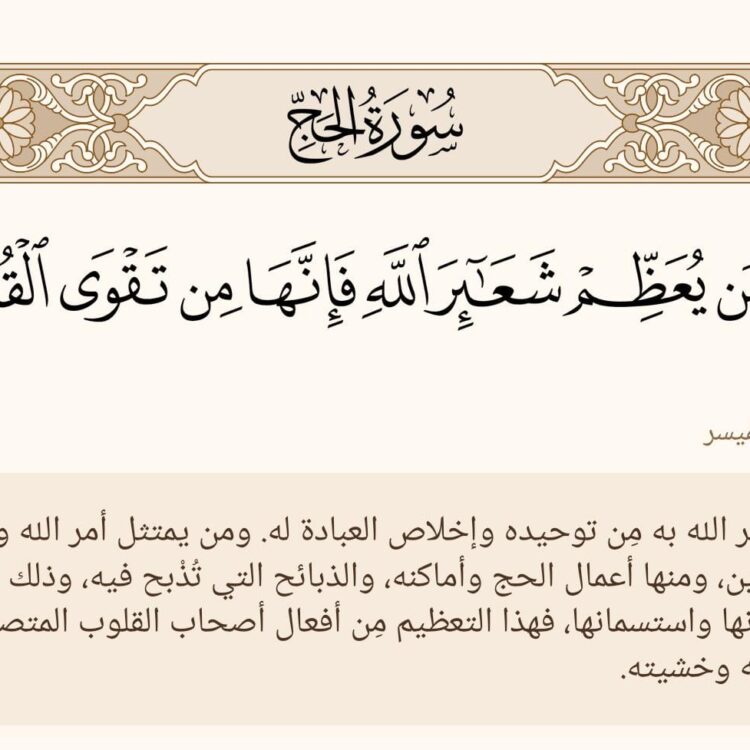 سُورَةُ الحَجِّ
يُعَظِّمۡ شَعَٰٓئِرَ ٱللَّهِ فَإِنَّهَا مِن تَقۡوَى
الله به مِن توحيده وإخلاص العبادة له. ومن يمتثل أمر الله
ومنها أعمال الحج وأماكنه، والذبائح التي تُذْبح فيه، وذلك
واستسمانها، فهذا التعظيم مِن أفعال أصحاب القلوب
وخشيته.